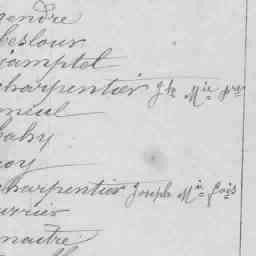 gendre
beslour
jamptel
charpentier Jh Mie Pre
meul
bahy
coy
charpentier Joseph Mie Fois
uvrier
maitre